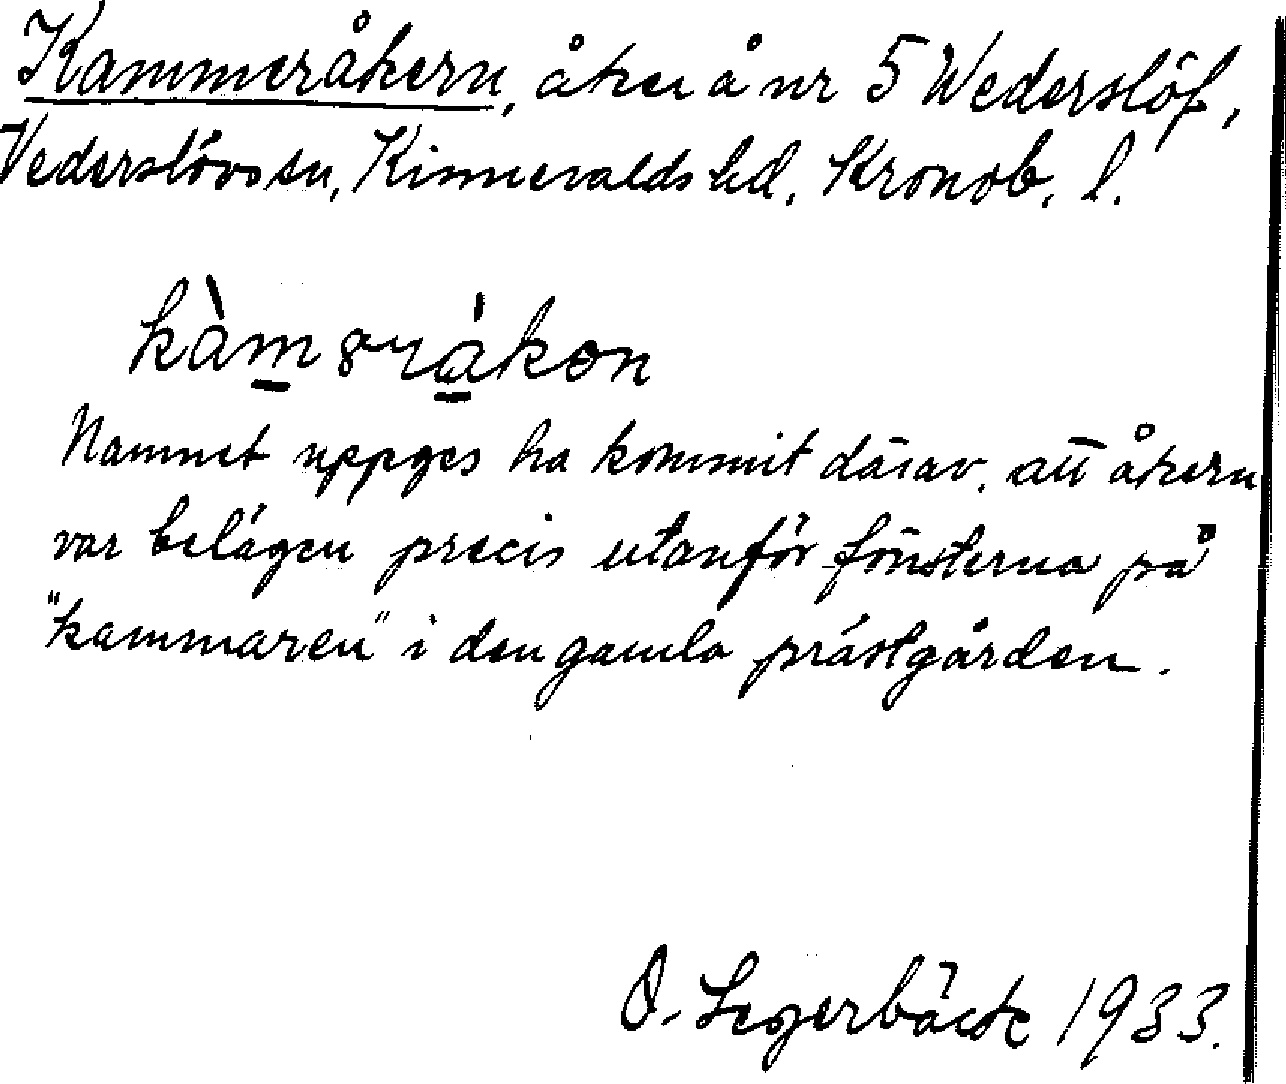 Kammeråkern, åker å nr 5 Wederslöf,
Vederslövs sn, Kinnevalds hd, Kronob. l.
Namnet uppges ha kommit därav, att åkern
var belägen precis utanför fönsterna på
"kammaren" i den gamla prästgården.
O. Segerbäck 1933.